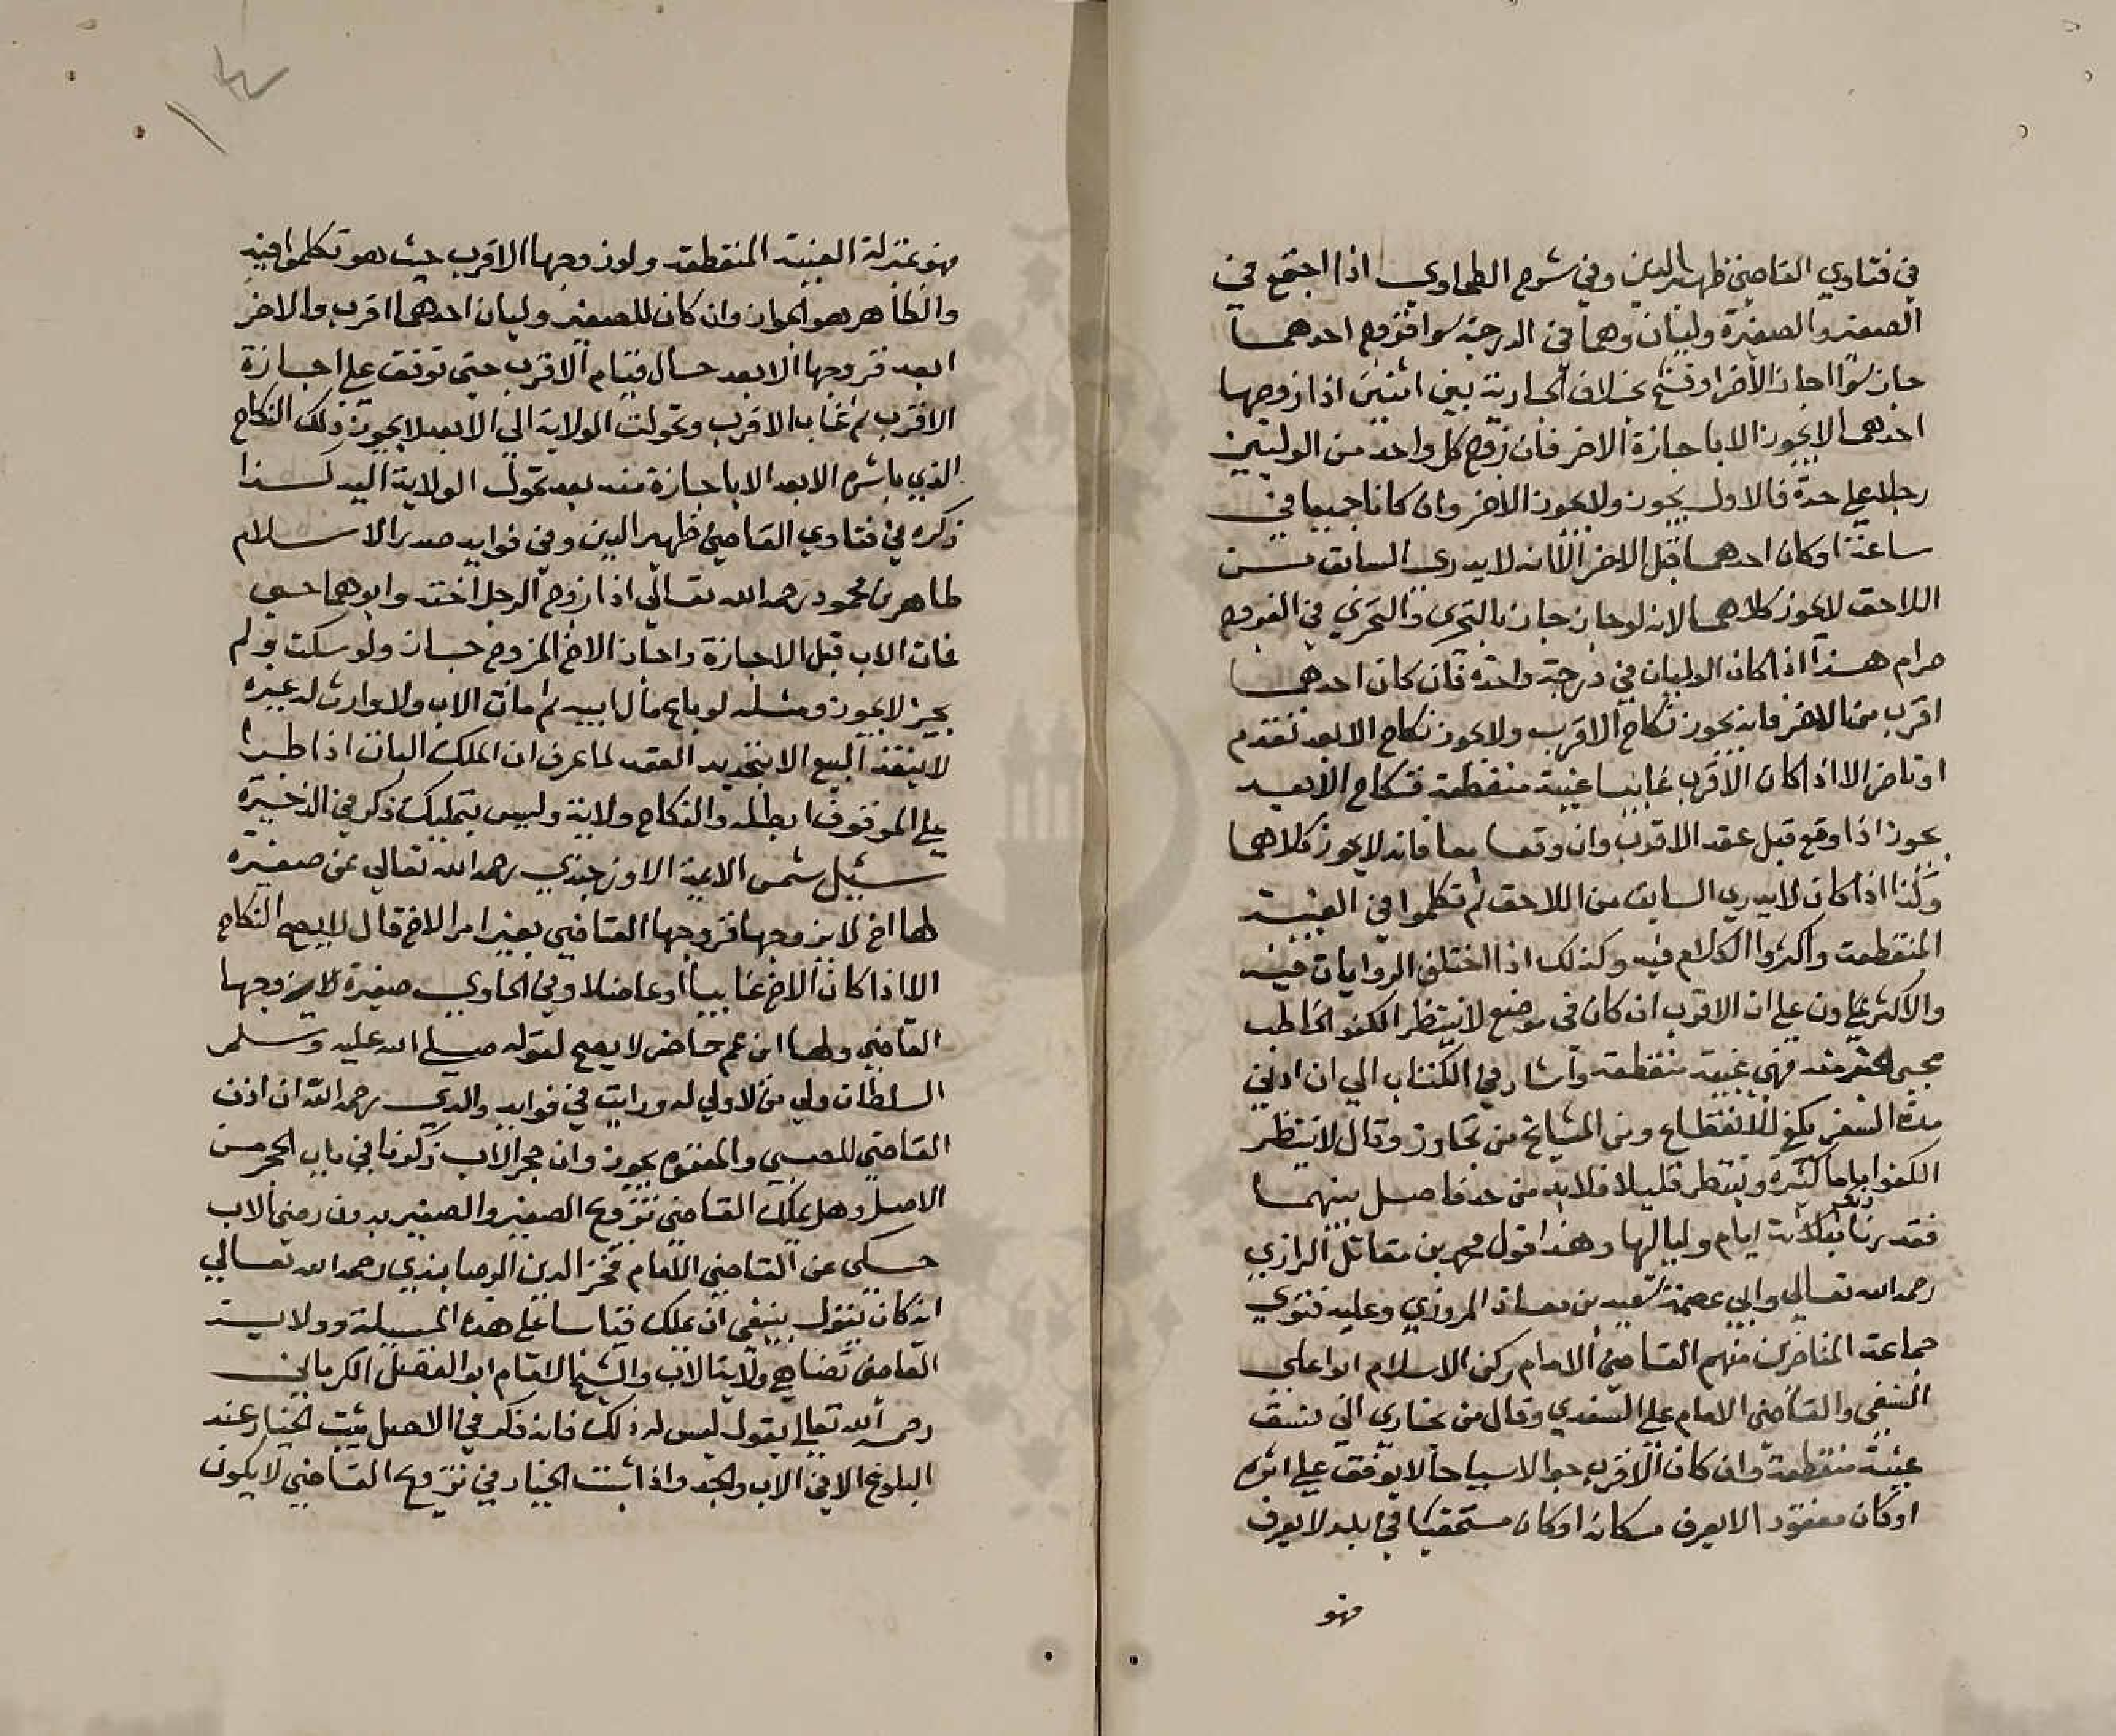 في فتاوي القاضي ظهير الدين وفي شرح الطحاوي اذا اجتمع في
الصغير والصغيرة وليان وهما في الدرجة سوا فزوج احدهما
جاز سوا اجاز الاخر او فسخ بخلاف الجارية بين اثنين اذا زوجها
احدهما لا يجوز الا باجازة الاخر فان زوج كل واحد من الوليين
رجلا علي حدة فالاول يجوز ولا يجوز الاخر وان كانا جميعا في
ساعة او كان احدهما قبل الاخر الا انه لا يدري السابق من
اللاحق لا يجوز كلاهما لانه لو جاز جاز بالتحري والتحري في الفروج
حرام هذا اذا كان الوليان في درجة واحدة فان كان احدهما
اقرب من الاخر فانه يجوز نكاح الاقرب ولا يجوز نكاح الابعد تقدم
او تاخر الا اذا كان الاقرب غايبا غيبة منقطعة فنكاح الابعد
يجوز اذا وقع قبل عقد الاقرب وان وقعا معا فانه لا يجوز كلاهما
وكذا اذا كان لا يدري السابق من اللاحق ثم تكلموا في الغيبة
المنقطعة واكثروا الكلام فيه وكذلك اذا اختلف الروايات فيه
والاكثر علي ان الاقرب ان كان في موضع لا ينتظر الكفو الخاطب
مجي الخبر منه فهي غيبة منقطعة واشار في الكتاب الي ان ادني
مدة السفر يكفي للانقطاع ومن المشايخ من تجاوز وقال لا ينتظر
الكفو اياما كثيرة وينتظر قليلا فلا بد من حد فاصل بينهما
فقدرنا بثلاثة ايام ولياليها وهذا قول محمد بن مقاتل الرازي
رحمه الله تعالي وابي عصمة سعيد بن معاذ المروزي وعليه فتوي
جماعة المتاخرين منهم القاضي الامام ركن الاسلام ابو علي
النسفي والقاضي الامام علي السغدي وقال من بخاري الي نسف
غيبة منقطعة وان كان الاقرب جوالا سياحا لا يوقف علي اثره
او كان مفقودا لا يعرف مكانه او كان مستخفيا في بلد لا يعرف
فهو
فهو بمنزلة الغيبة المنقطعة ولو زوجها الاقرب حيث هو تكلموا فيه
والظاهر هو الجواز وان كان للصغير وليان احدهما اقرب والاخر
ابعد فزوجها الابعد حال قيام الاقرب حتي توقف علي اجازة
الاقرب ثم غاب الاقرب وتحولت الولاية الي الابعد لا يجوز ذلك النكاح
الذي باشره الابعد الا باجازة منه بعد تحول الولاية اليه كذا
ذكره في فتاوي القاضي ظهير الدين وفي فوايد صدر الاسلام
طاهر بن محمود رحمه الله تعالي اذا زوج الرجل اخته وابوهما حي
فمات الاب قبل الاجازة واجاز الاخ المزوج جاز ولو سكت ولم
يجز لا يجوز ومثله لو باع مال ابيه ثم مات الاب ولا وارث له غيره
لا ينفذ البيع الا بتجديد العقد لما عرف ان الملك البات اذا طرا
علي الموقوف ابطله والنكاح ولاية وليس بتمليك ذكر في الذخيرة
سئيل شمس الايمة الاوزجندي رحمه الله تعالي عن صغيرة
لها اخ لا يزوجها فزوجها القاضي بغير امر الاخ قال لا يصح النكاح
الا اذا كان الاخ غايبا او عاضلا وفي الحاوي صغيرة لا يزوجها
القاضي ولها ابن عم حاضر لا يصح لقوله صلي الله عليه وسلم
السلطان ولي من لا ولي له ورايت في فوايد والدي رحمه الله ان اذن
القاضي للصبي والمعتوه يجوز وان حجر الاب ذكرنا في باب الحجر من
الاصل وهل يملك القاضي تزويج الصغير والصغير بدون رضي الاب
حكي عن القاضي الامام فخر الدين رحمه الله تعالي
انه كان يقول ينبغي ان يملك قياسا علي هذه المسيلة وولاية
القاضي تضاهي ولاية الاب والشيخ الامام ابو الفضل الكرماني
رحمه الله تعالي يقول ليس له ذلك فانه ذكر في الاصل يثبت الخيار عند
البلوغ الا في الاب والجد واذا ثبت الخيار في تزويج القاضي لا يكون